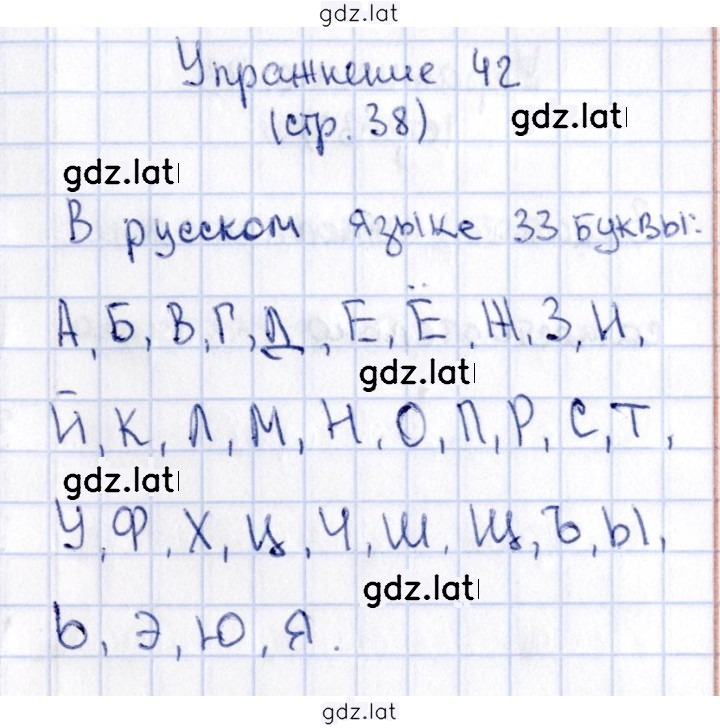 gdz.lat
Упражнение 42
(стр. 38)
gdz.lat
gdz.lat
В русском языке 33 буквы:
А, Б, В, Г, Д, Е, Ё, Ж, З, И,
gdz.lat
Й, К, Л, М, Н, О, П, Р, С, Т,
gdz.lat
У, Ф, Х, Ц, Ч, Ш, Щ, Ъ, Ы,
gdz.lat
Ь, Э, Ю, Я.
gdz.lat